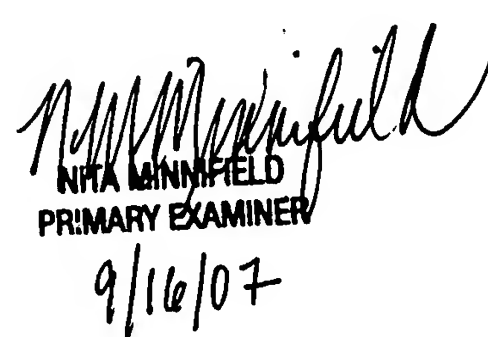 NMMinnifield
NITA MINNIFIELD
PRIMARY EXAMINER
9/16/07